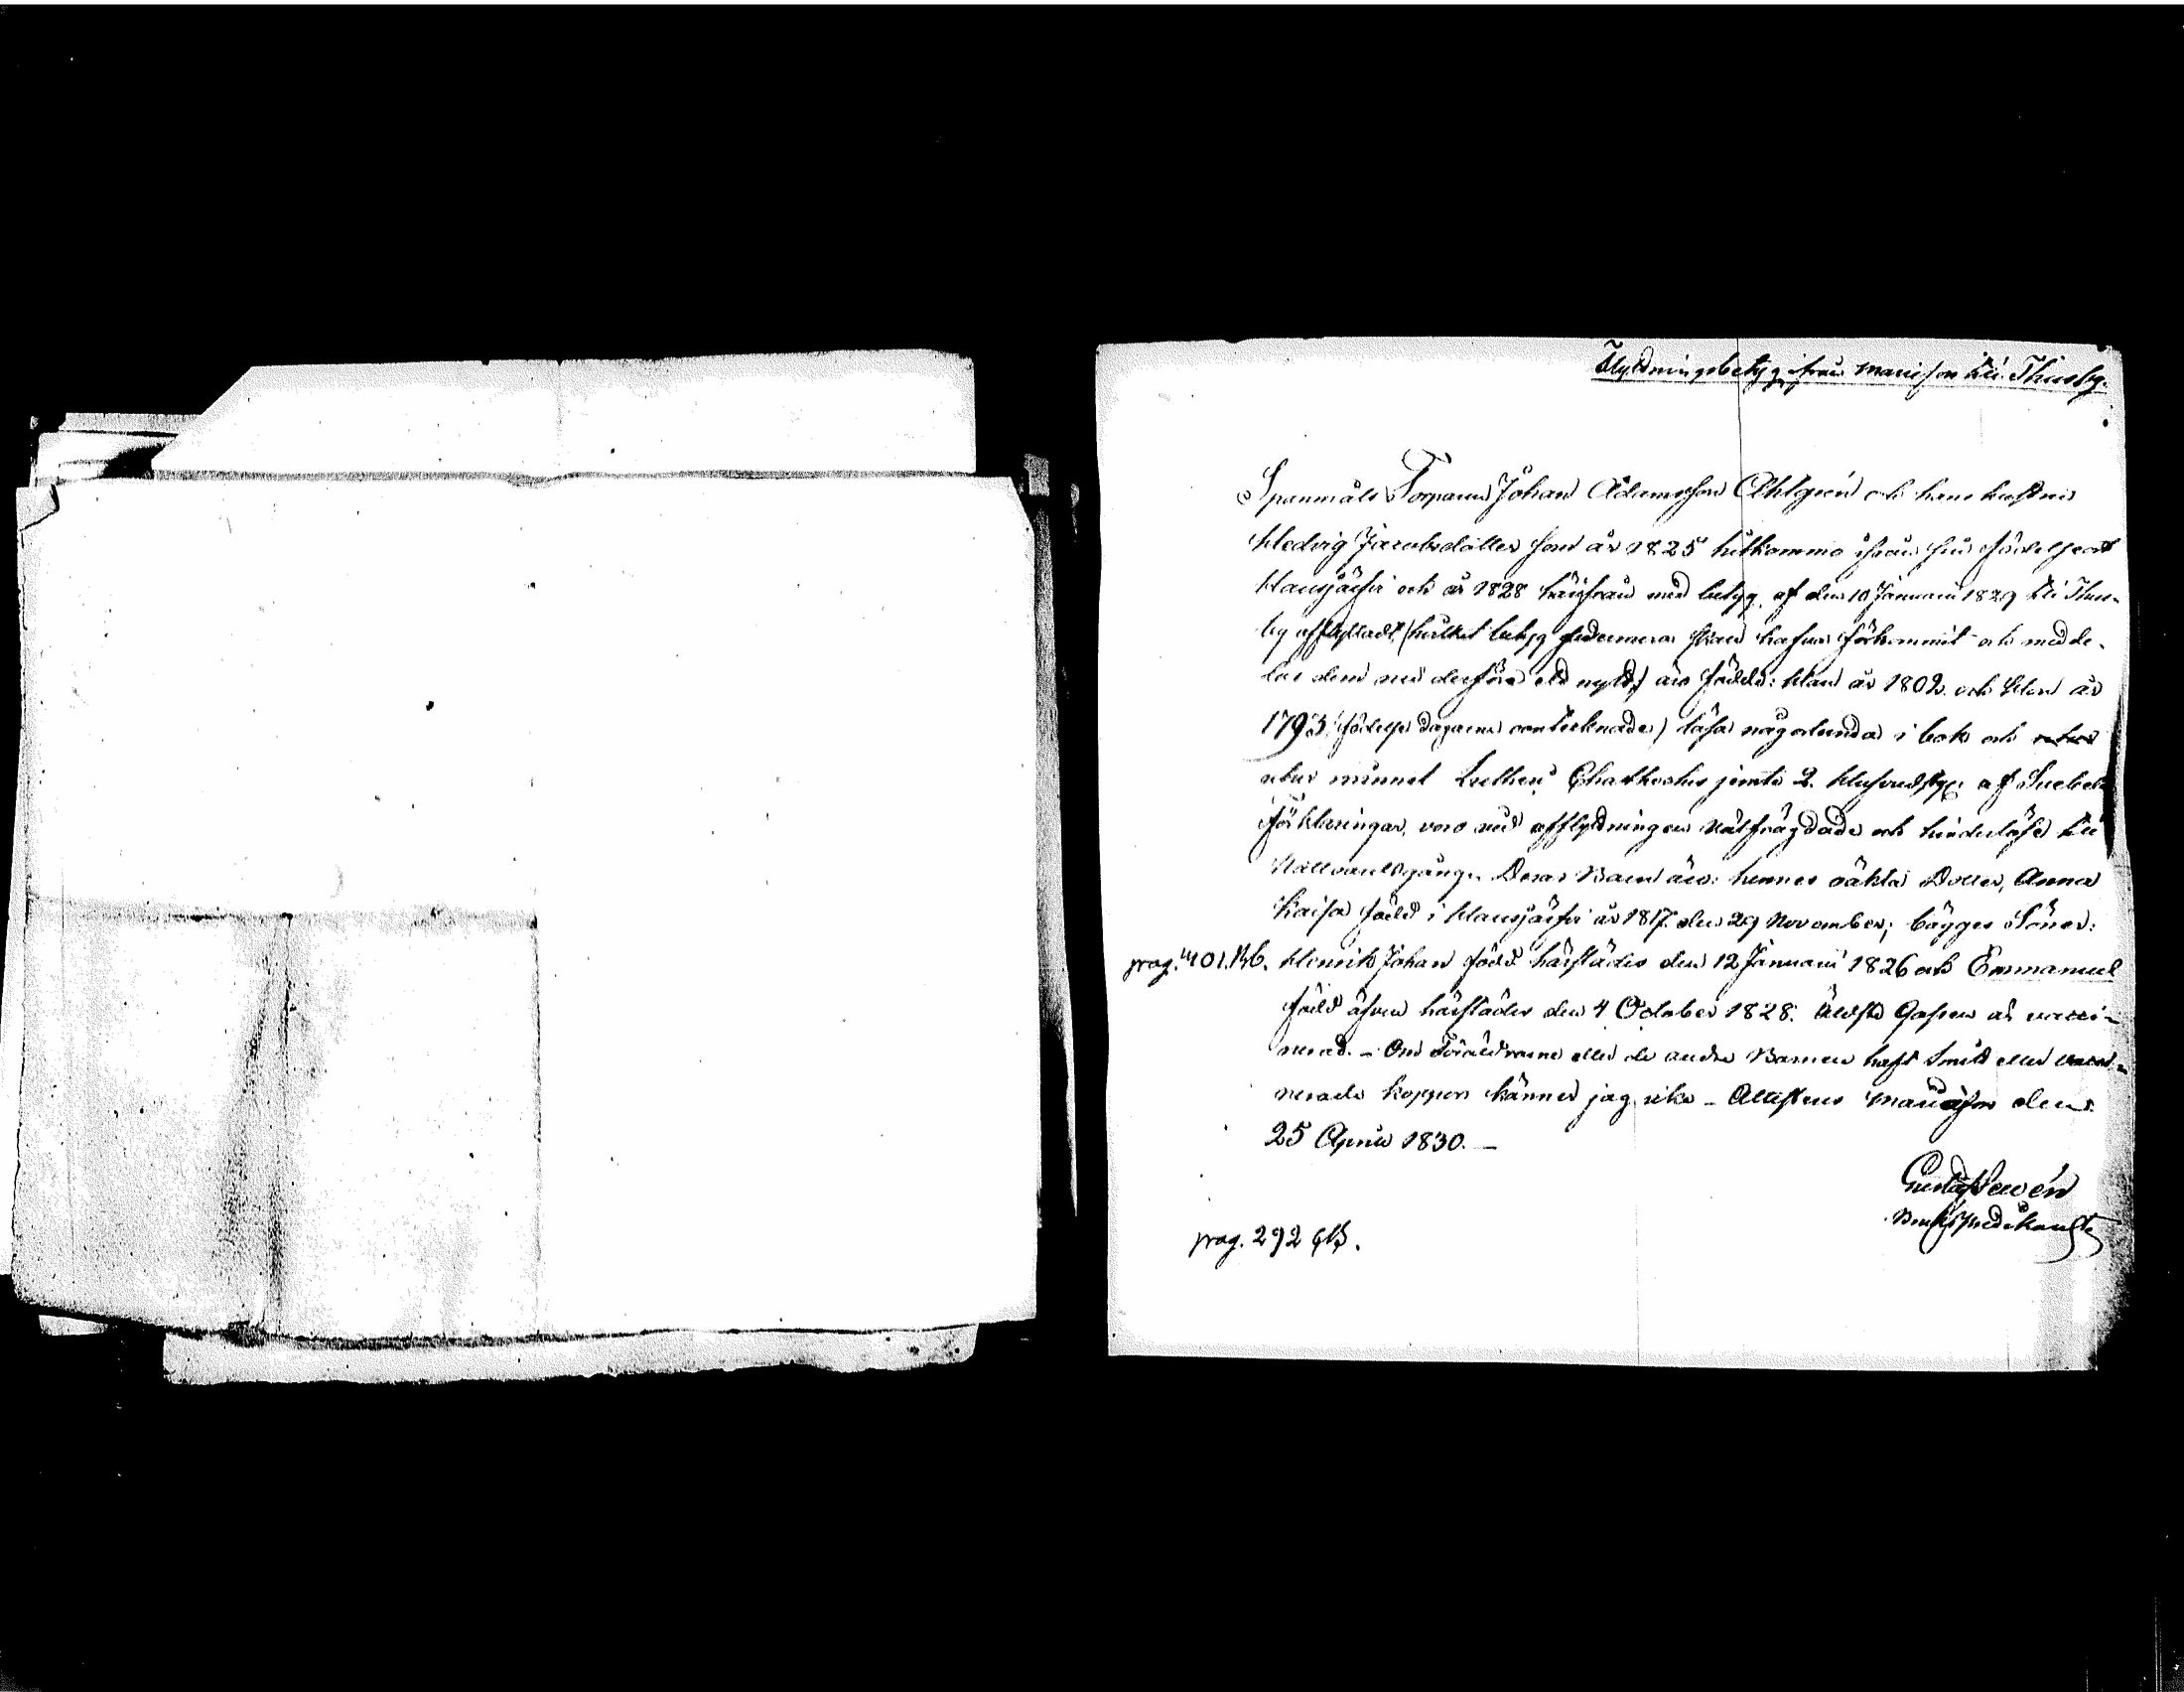 Flyttningsbetyg ifrån Mariefors till Thusby.
Spanmåls Torparen Johan Adamsson Ahlgrén och hans hustru
Hedvig Jacobsdotter som år 1825 hitkommo ifrån sin födelseort
Hausjärfvi och år 1828 härifrån med betyg af den 10 Januarii 1829 till Thus-
by afflyttadt, (hvilket betyg sedermera skall hafva förkommit och medde-
las dem nu derföre ett nytt) äro födde: Han år 1802 och Hon år
1793 (födelse dagarne oantecknade) läsa någorlunda i bok och
utur minnet Lutheri Cathechis jemte 2. Hufvudst: af Svebelii
Förklaringar, voro vid afflyttningen välfrägdade och hinderlöse till
Nattvardsgång. Deras Barn äro: hennes oäkta Dotter, Anna
Kaisa född i Hausjärfvi år 1817 den 29 November; bägges Söner:
pag. 401. Kb. Henrik Johan född härstädes den 12 Januarii 1826 och Emmanuel
född äfven härstädes den 4 October 1828. Äldste Gossen är vacci-
nerad. - Om Föräldrarne eller de andra Barnen haft Smitt eller vacci-
nerade koppor känner jag icke - Attesteras Mariefors den
25 April 1830. -
Gustaf
Bruks Predikant
pag. 292